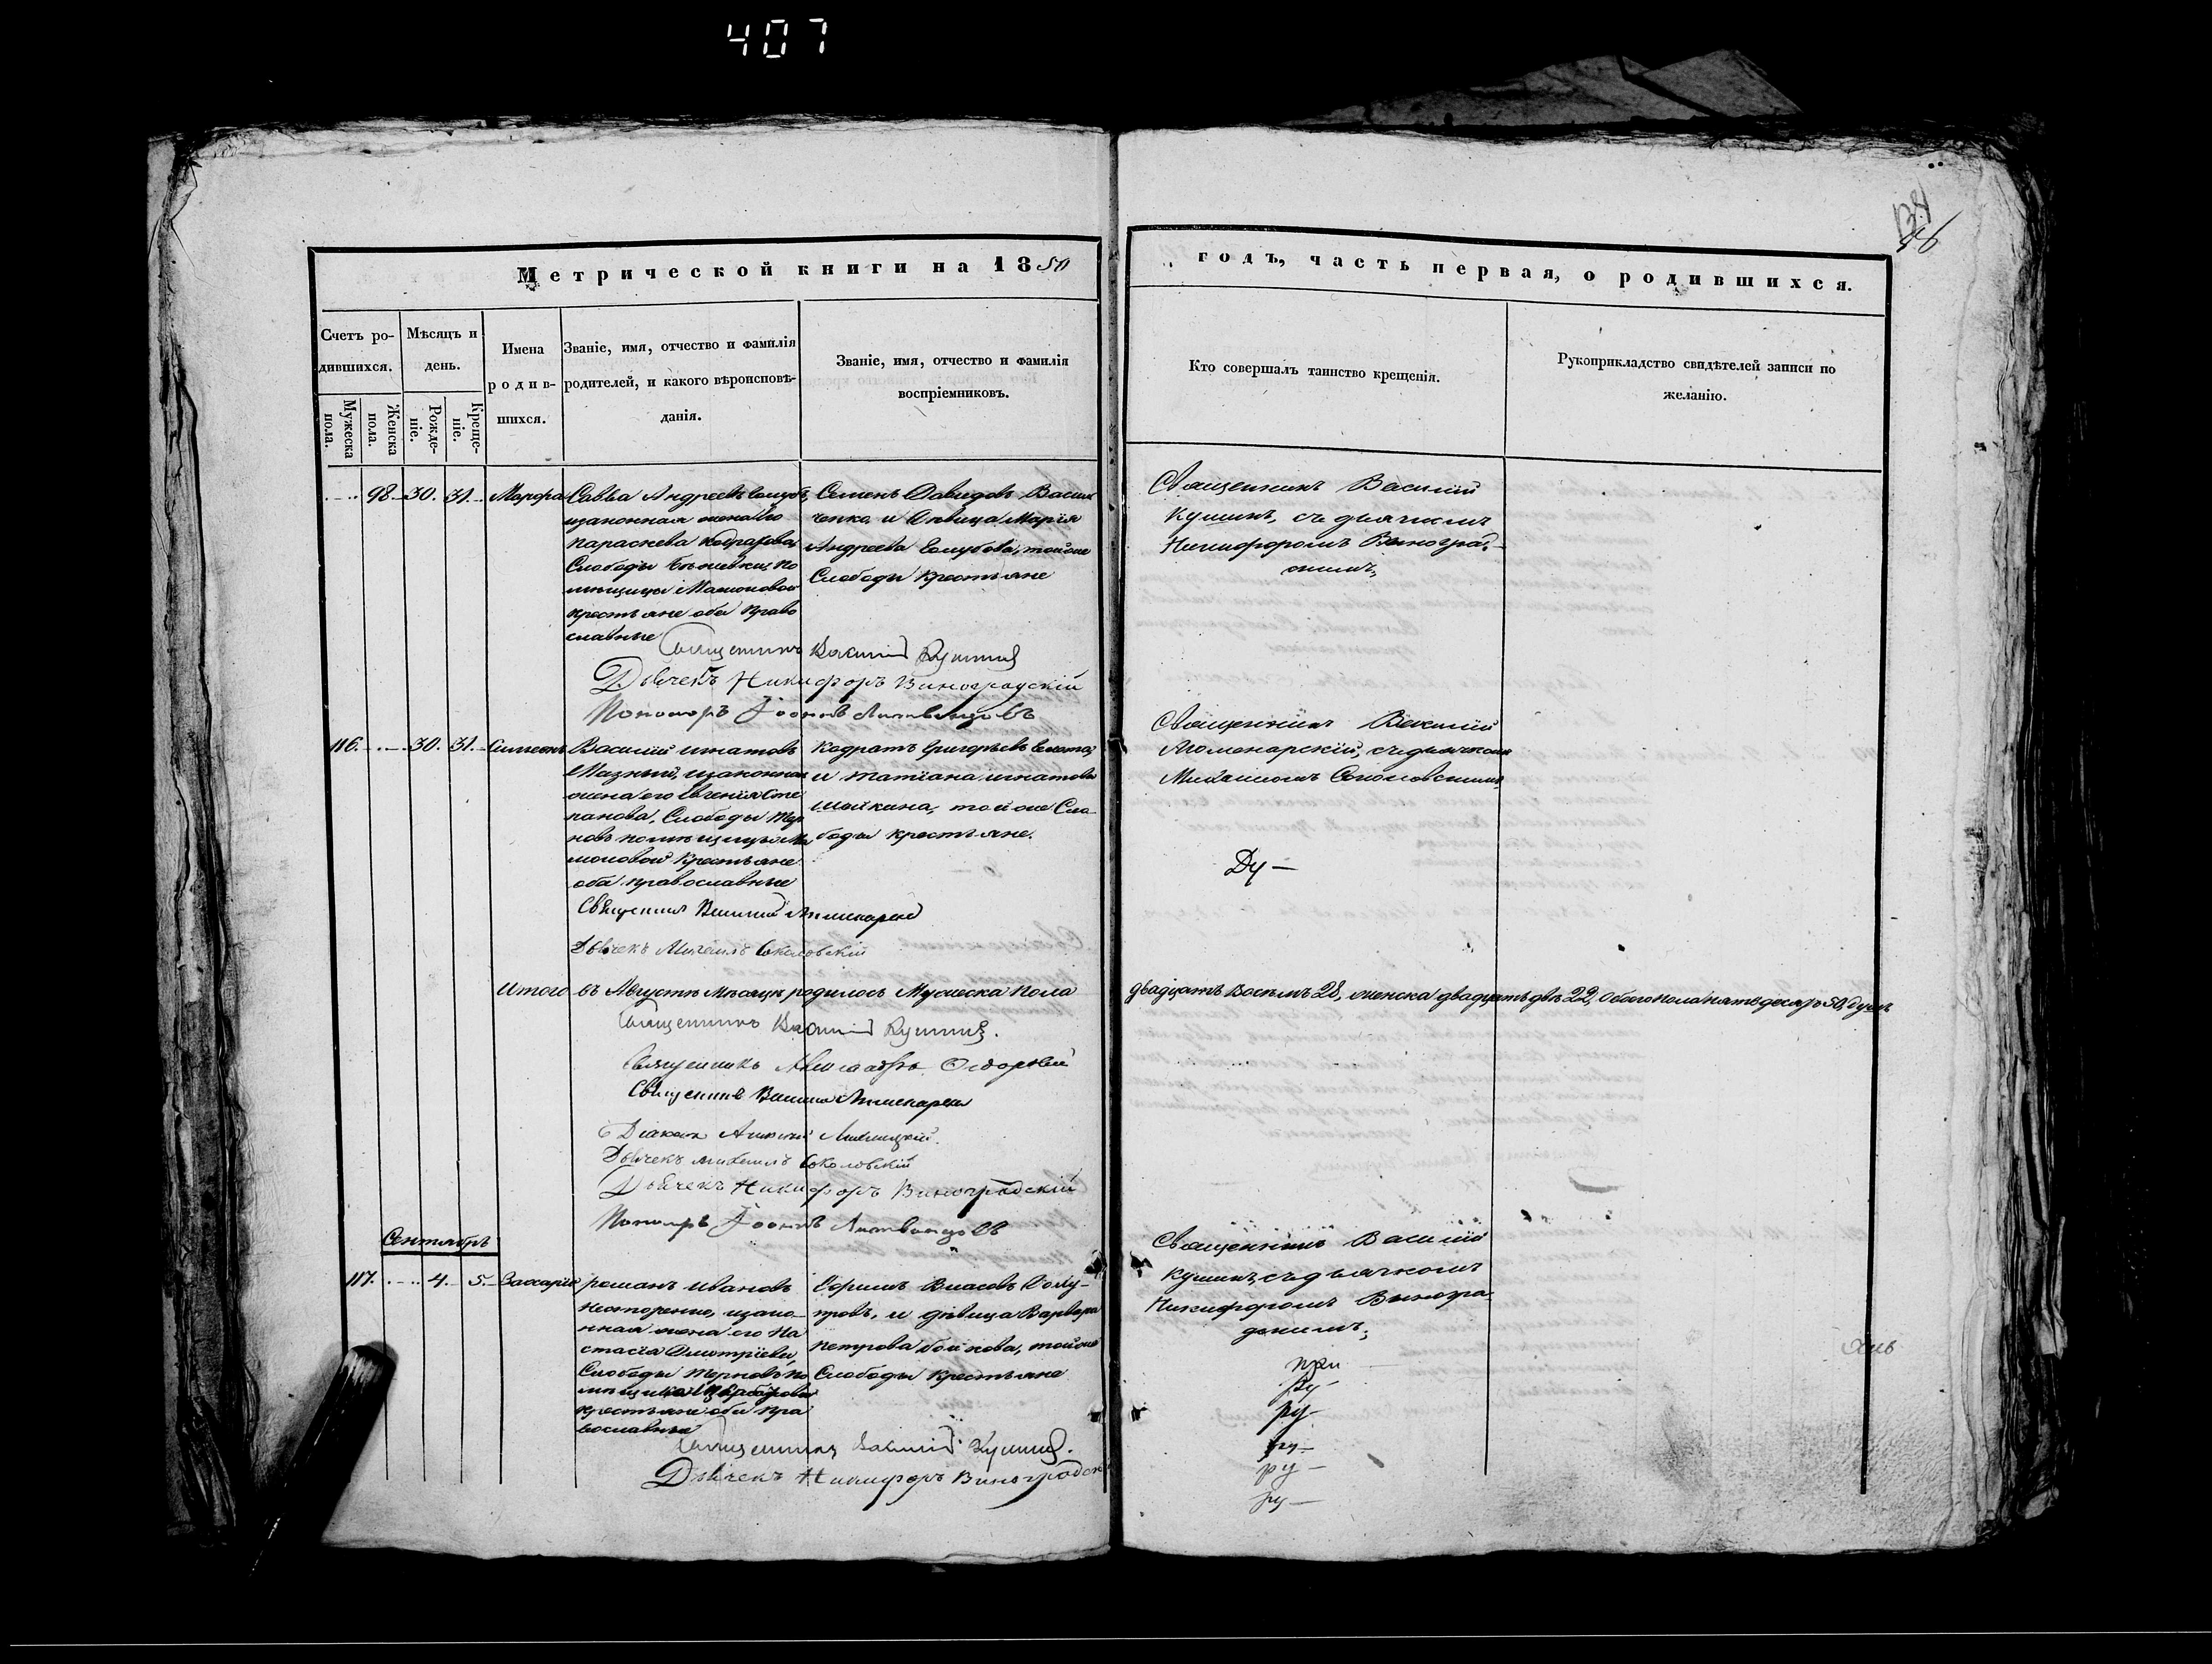 407
134
Метрической книги на 1850
годъ, часть первая, о родившихся.
Счетъ ро-
дившихся.
Мужеска пола.
Женска пола.
Мѣсяцъ и
день.
Рожде-
ніе.
Креще-
ніе.
Имена
родив-
шихся.
Званіе, имя, отчество и фамилія
родителей, и какого вѣроисповѣ-
данія.
Званіе, имя, отчество и фамилія
воспріемниковъ.
Кто совершалъ таинство крещенія.
Рукоприкладство свидѣтелей записи по
желанію.
98. 30. 31. Марфа
Савва Андреевъ
изаконная жена его
Параскева
Слободы
мѣщицы Мамоновой
крестьяне оба право
славные
Семенъ Давидовъ
ченко и дѣвица Марія
Андреева Голубова, тойже
Слободы крестьяне
Священникъ Василій
Кушинъ, съ дьячкомъ
Никифоромъ Виноград-
скимъ;
Священникъ Василій Кушинъ
Дьячекъ Никифоръ Виноградскій
Пономарь Іоаннъ
116. 30. 31. Симеонъ
Василій Игнатовъ
Мазный, изаконная
жена его Евгенія Сте
панова, Слободы Тер
новъ помѣщицы Ма
моновой крестьяне
оба православные
Кодратъ Григорьевъ
и татіана игнатова
тойже Сло-
боды крестьяне.
Священникъ Василій
съ дьячкомъ
Михаиломъ Соколовскимъ
Ду —
Священникъ Василій
Дьячекъ Михаилъ Соколовскій
Итого въ Августѣ Мѣсяцѣ родилось Мужеска пола
двадцать восемь 28, женска двадцать двѣ 22, обоего пола пятьдесятъ 50, душъ
Священникъ Василій Кушинъ.
Священникъ
Священникъ Василій
Діаконъ
Дьячекъ Михаилъ Соколовскій
Дьячекъ Никифоръ Виноградскій
Пономарь Іоаннъ
Сентябрь
117. 4. 5. Захарія
романъ Ивановъ
Нестеренко, изако-
нная жена его На
стасія Дмитріева,
Слободы Терновъ по
мѣщика
крестьяне оба пра
вославные
Ефимъ Власовъ
и дѣвица Варвара
петрова тойже
Слободы крестьяне
Священникъ Василій
Кушинъ, съ дьячкомъ
Никифоромъ Виногра-
дскимъ;
при
ру-
ру-
ру-
ру —
ру —
Священникъ Василій Кушинъ.
Дьячекъ Никифоръ Виноградск